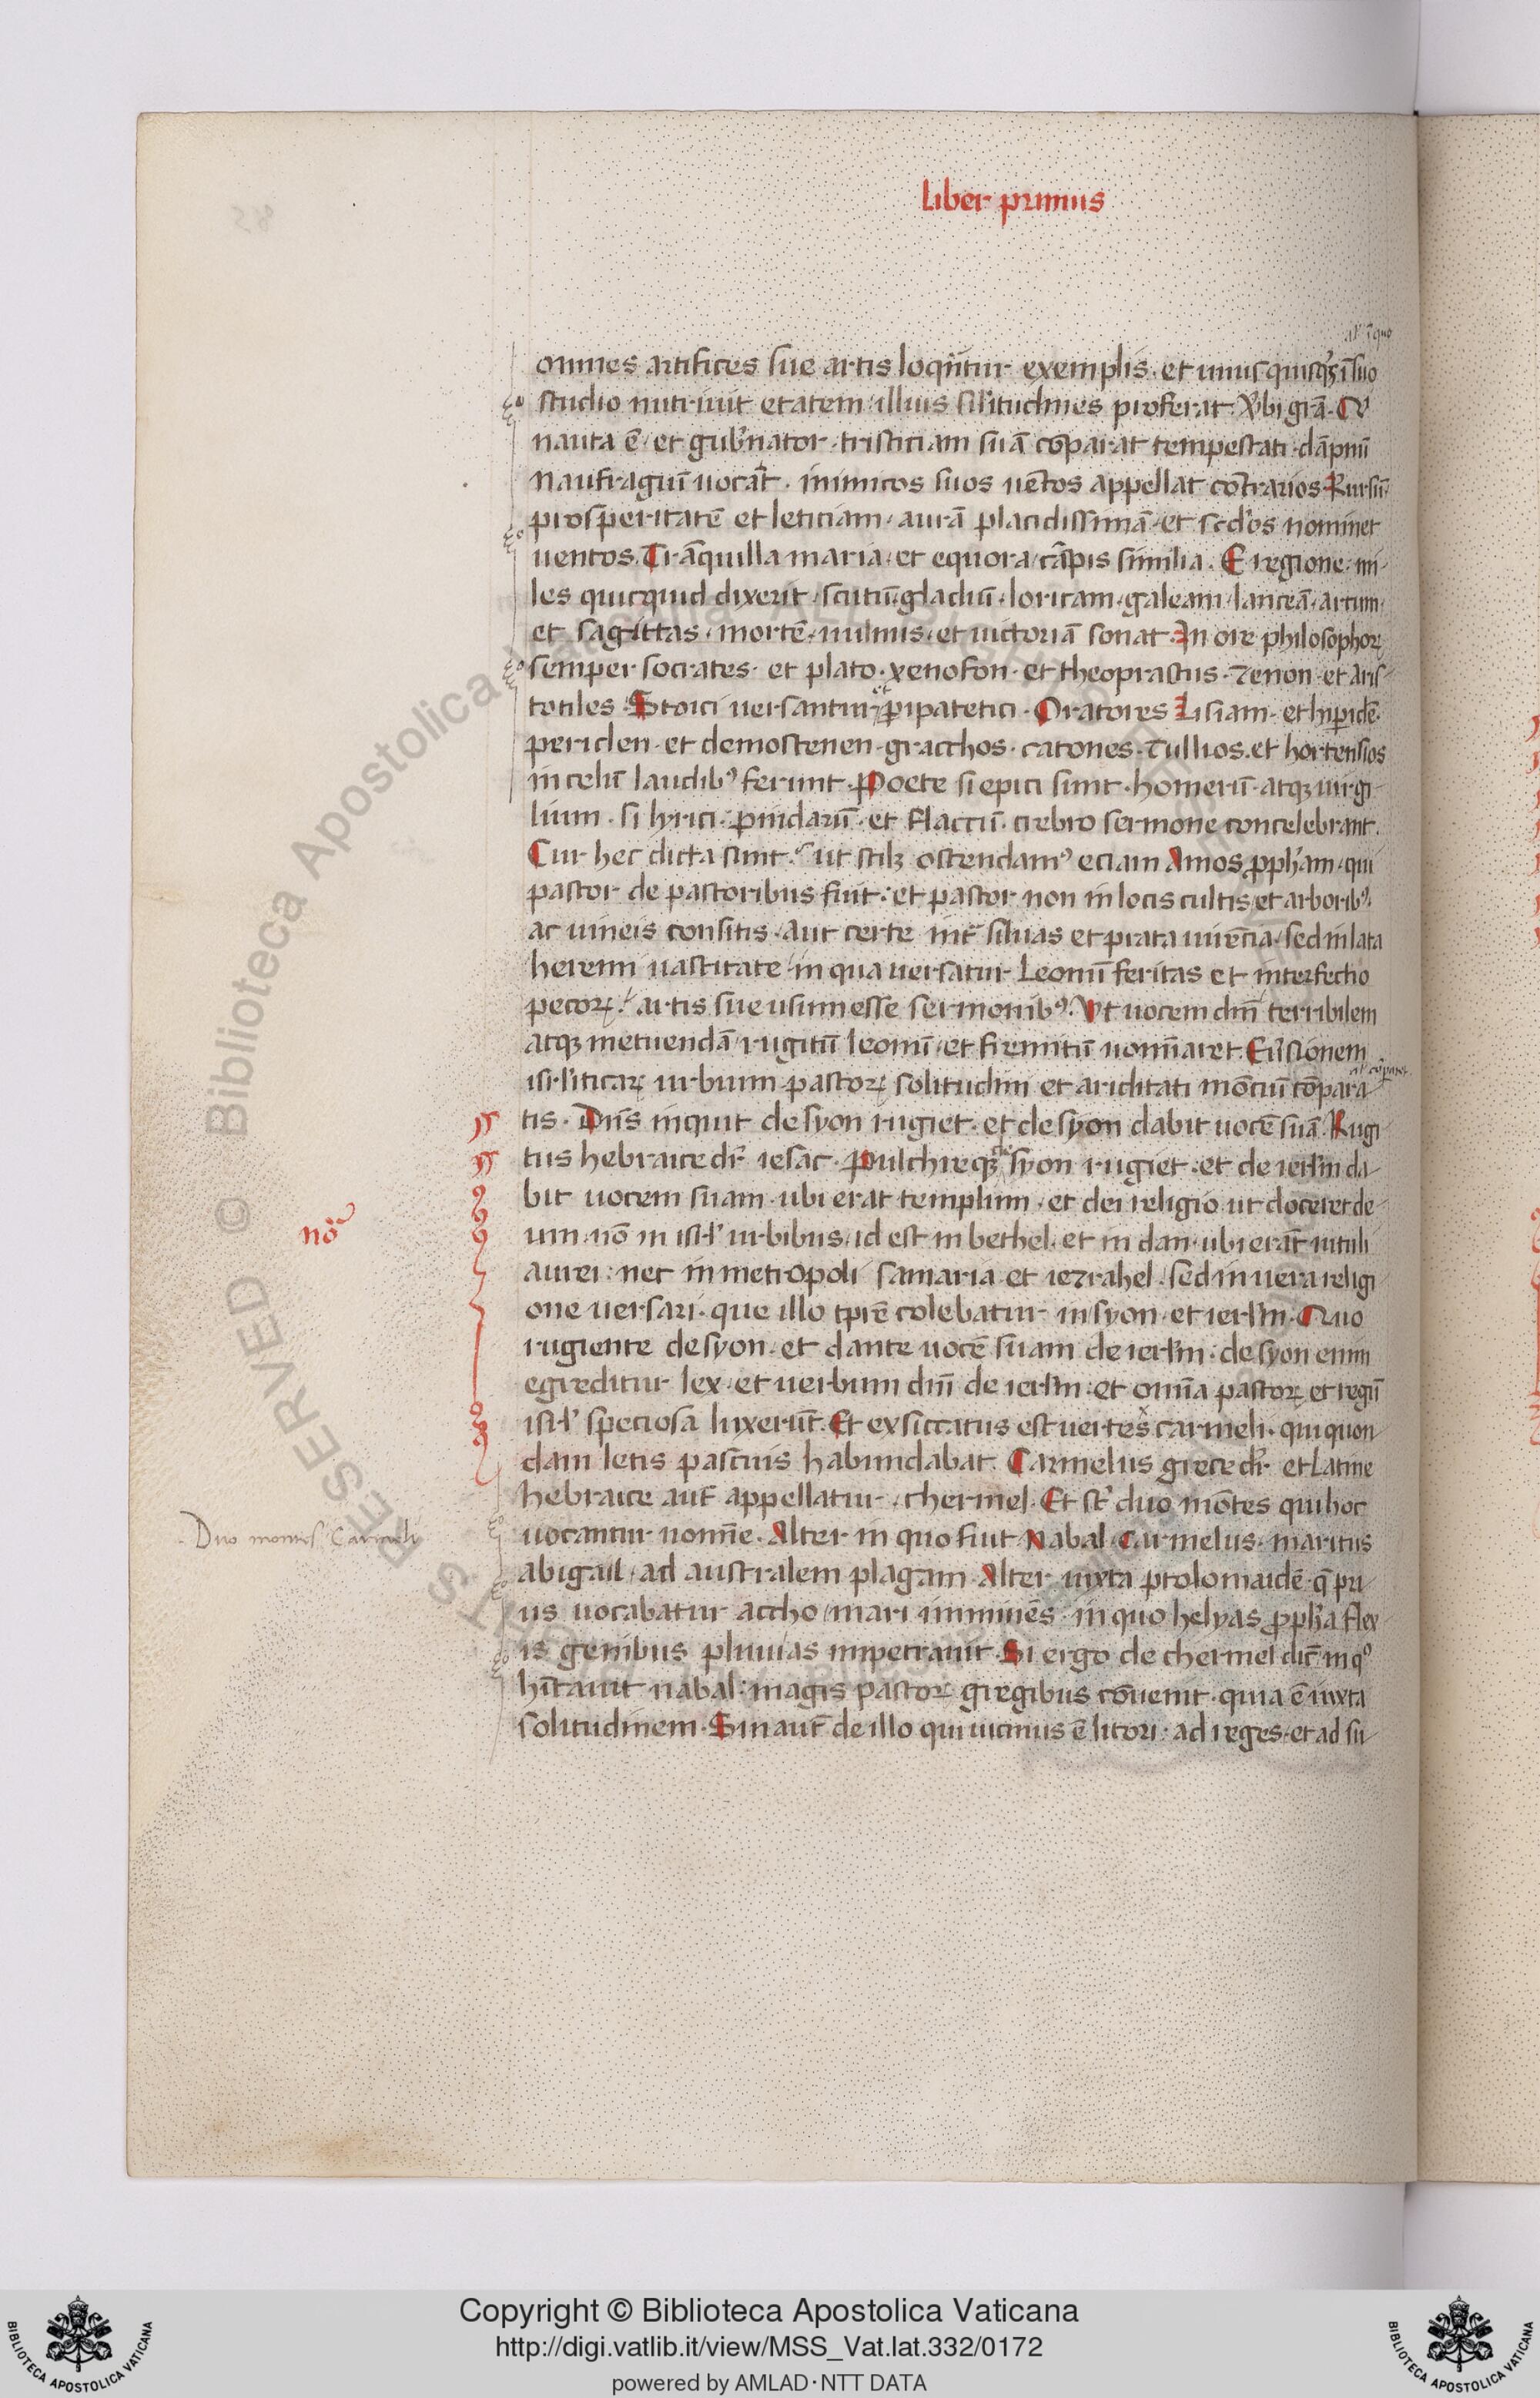 liber primus
al' ī quo
omnes artifices sue artis loquūtur exemplis. et unusquisqꝫ ī suo
studio nutriuit etatem illius sil'itudines proferat. V'bi grā. Qͥ
nauta ē et gub'nator. tristiciam suā cōparat tempestati. dāpnū
naufragiū uocāt. inimicos suos uētos appellat cōtrarios. Rursū
prosperitatē et leticiam. aurā placidissimā. et sc'd'os nominet
uentos. Trāquilla maria et equora cāpis similia. E regione mi-
les quicquid dixerit. scutū. gladiū. loricam. galeam. lanceā. arcum
et sagittas. mortē. uulnus. et uictoriā sonat. In ore philosophoꝝ
semper socrates. et plato. xenofon. et theoprastus. zenon. et aris-
totiles. Stoici uersantur et ꝑipatetici. Oratores Lisiam. et hiꝑidē.
periclen. et demostenen. gracchos. catones. Tullios. et hortensios
in celū laudibꝰ ferunt. Poete si epici sunt. homerū. atqꝫ uirgi-
lium. si lyrici. pindarū. et flaccū. crebro sermone concelebrant.
Cur hec dicta sunt. ut scilꝫ ostendamꝰ eciam Amos ꝓph'am. qui
pastor de pastoribus fuit. et pastor non in locis cultis et arboribꝰ
ac uineis consitis. aut certe int' siluas et prata uirēcia. sed in lata
heremi uastitate in qua uersatur Leonū feritas et interfectio
pecoꝝ. artis sue usum esse sermonibꝰ. Vt uocem dnī terribilem
atqꝫ metuendā rugitū leonū et fremitū nomīaret. Eu'sionem
al' cōparet
isrl'iticaꝝ urbium pastoꝝ solitudini et ariditati mōciū cōpara-
tis. Dn̄s inquit de syon rugiet. et de syon dabit uocē suā. Rugi-
tus hebraice dr̄ iesac. Pulchreqꝫ de syon rugiet. et de ierl'm da-
bit uocem suam. ubi erat templum. et dei religio. ut doceret de-
um. nō in isrl' urbibus. id est in bethel. et in dan. ubi erāt uituli
nōͣ
aurei. nec in metropoli samaria et iezrahel. sed in uera religi-
one uersari. que illo tp̄re colebatur in syon. et ierl'm. Quo
rugiente de syon. et dante uocē suam de ierl'm. de syon enim
egreditur lex. et uerbum dnī de ierl'm. et omīa pastoꝝ et regū
isrl' speciosa luxerūt. Et exsiccatus est uertex carmeli. qui quon-
dam letis pascuis habundabat. Carmelus grece dr̄ et Latine
hebraice aut̄ appellatur. chermel. Et st̄ duo mōtes qui hoc
Duo montes Carmeli
uocantur nomīe. Alter in quo fuit Nabal Carmelus. maritus
abigail. ad australem plagam. Alter iuxta ptolomaidē. q̄ pri-
us uocabatur accho. mari imminēs. in quo helyas ꝓph'a flex-
is genibus pluuias impetrauit. Si ergo de chermel dic̄ in qͦ
hītauit nabal. magis pastoꝝ gregibus cōuenit. quia ē iuxta
solitudinem. Sin aut̄ de illo qui uicinus ē litori. ad reges. et ad su-
© Biblioteca Apostolica Vaticana
Copyright © Biblioteca Apostolica Vaticana
http://digi.vatlib.it/view/MSS_Vat.lat.332/0172
powered by AMLAD·NTT DATA
BIBLIOTECA APOSTOLICA VATICANA
BIBLIOTECA APOSTOLICA VATICANA